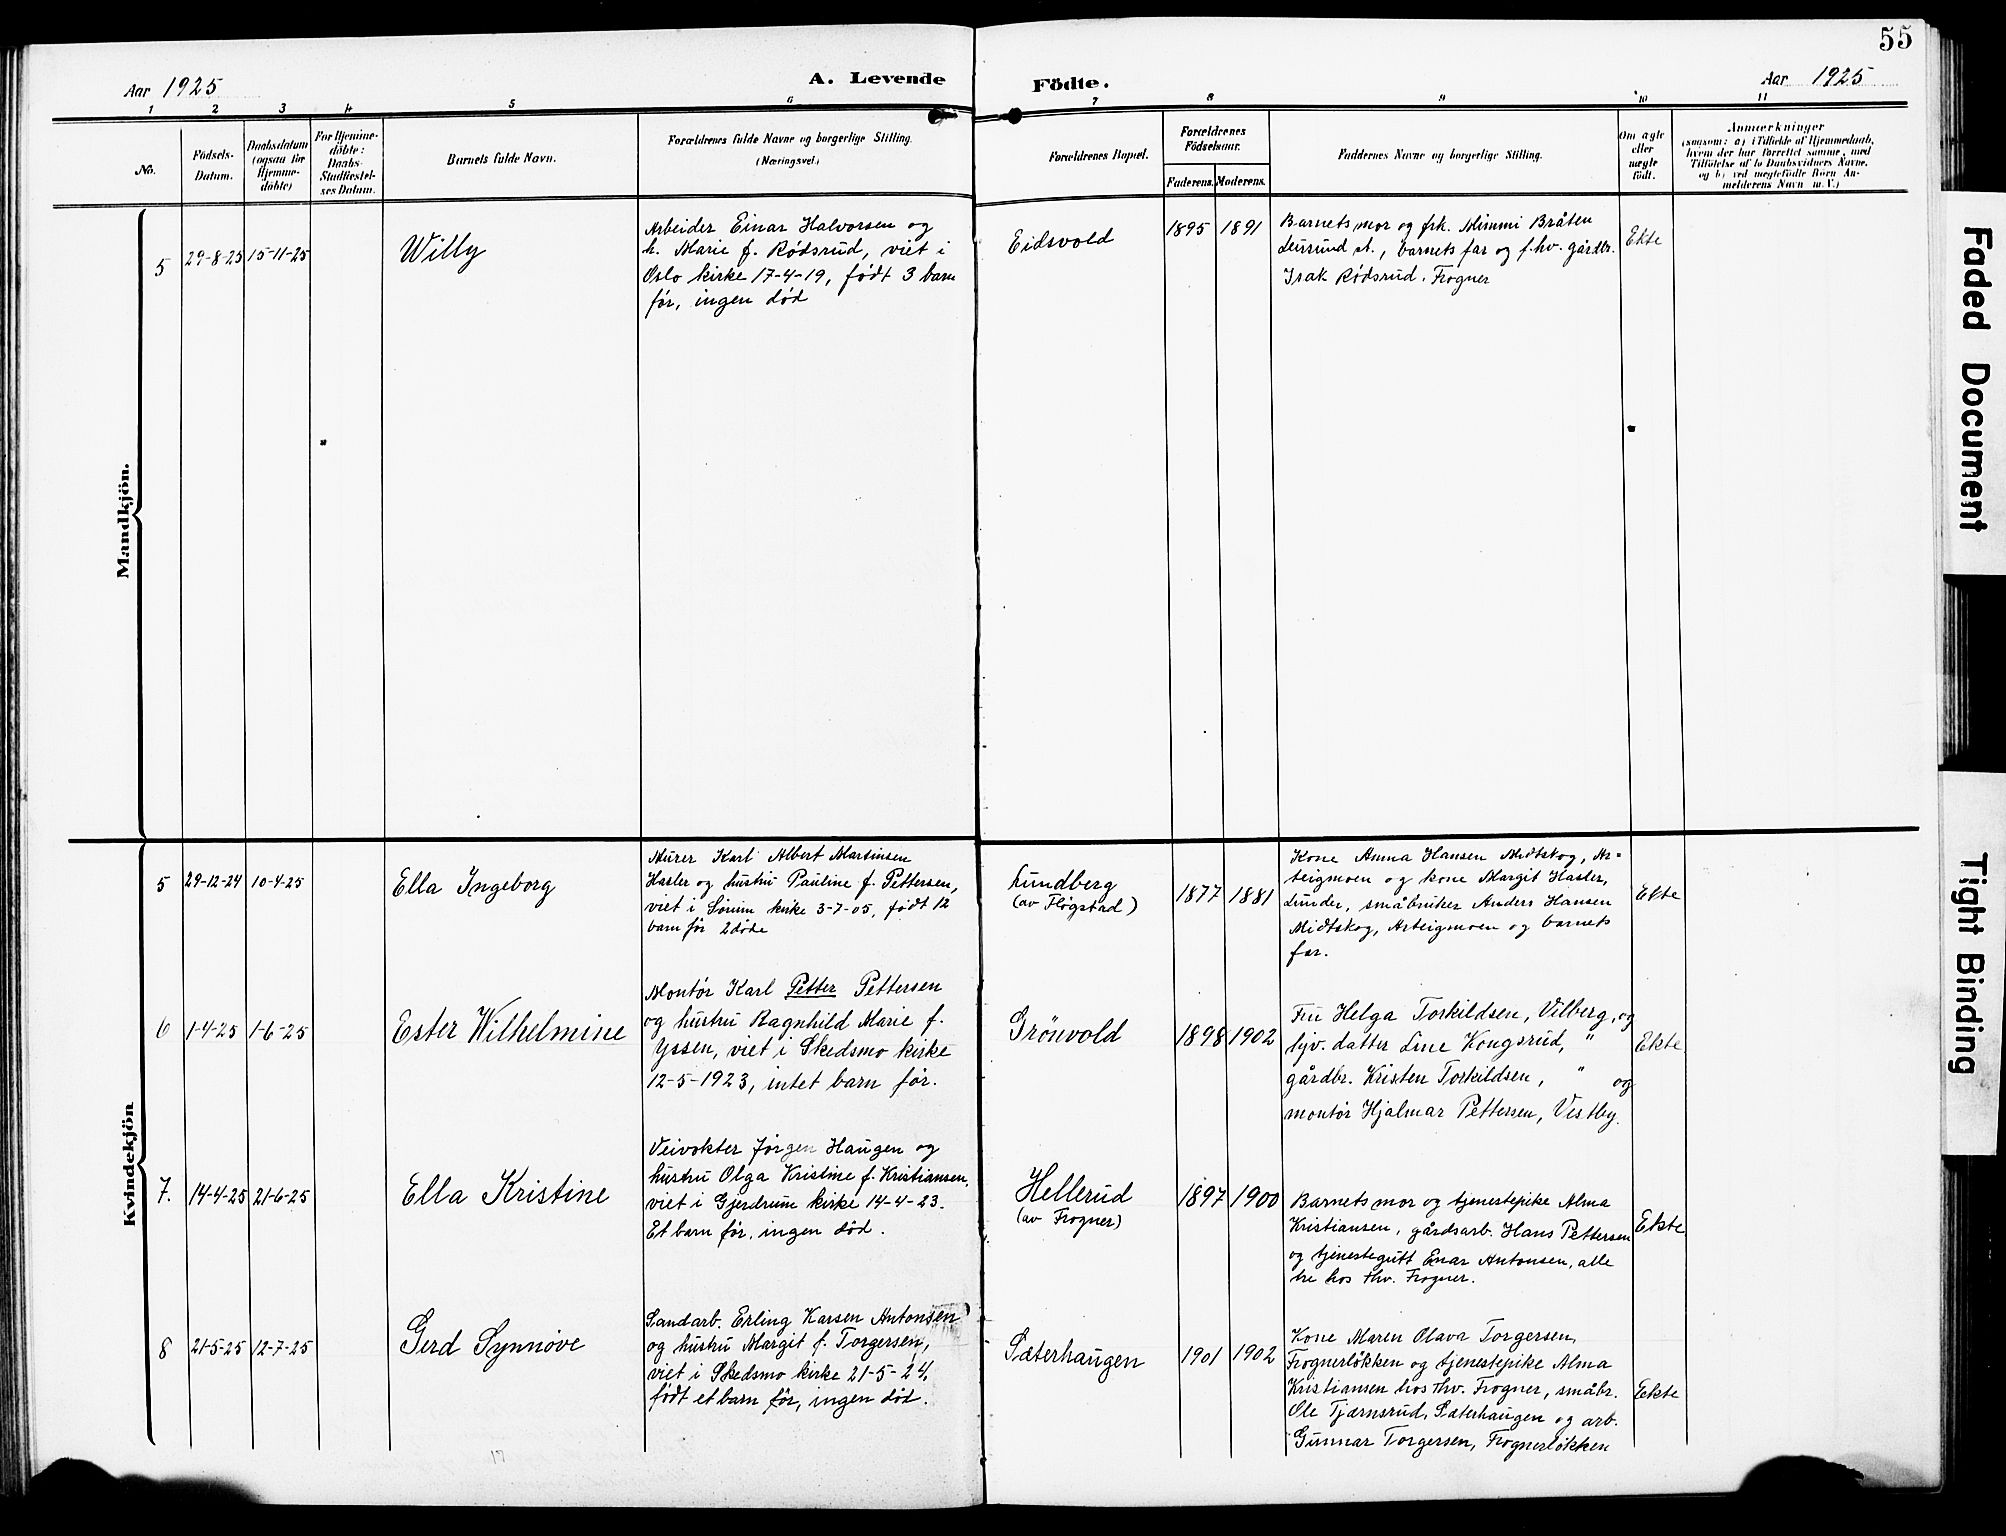 55
Aar 1925
A. Levende
Födte.
Aar 1925
1 2 3 4 5 6 7 8 9 10 11
No.
Födsels-
Datum.
Daabsdatum
(ogsaa for
Hjemme-
döbte)
For Hjemme-
döbte:
Daabs-
Stadfæstel-
ses Datum.
Barnets fulde Navn.
Forældrenes fulde Navne og borgerlige Stilling.
(Næringsvei.)
Forældrenes Bopæl.
Forældrenes
Födselsaar.
Faderens. Moderens.
Faddernes Navne og borgerlig Stilling.
Om ægte
eller
uægte
födt.
Anmærkninger
(saasom: a) i Tilfælde af Hjemmedaab,
hvem der har forrettet samme, med
Tilföielse af to Daabsvidners Navne,
og b) ved uægtefödte Börn An-
melderens Navn m. V.)
Mandkjön.
5
29-8-25
15-11-25
Willy
Arbeider Einar Halvorsen og
h. Marie f. Rødsrud, viet i
Oslo kirke 17-4-19, født 3 barn
før, ingen død
Eidsvold
1895
1891
Barnets mor og frk. Mimmi Bråten
Leirsund st., barnets far og f.hv. gårdbr.
Isak Rødsrud. Frogner
Ekte
Kvindekjön
5
29-12-24
10-4-25
Ella Ingeborg
Murer Karl Albert Martinsen
Hasler og hustru Pauline f. Pettersen,
viet i Sørum kirke 3-7-05, født 12
barn før 2 døde
Lundberg
(av Fløgstad)
1877
1881
Kone Anna Hansen Midtskog, Ar-
teigmoen og kone Margit Hasler,
Lunder, småbruker Anders Hansen
Midtskog, Arteigmoen og barnets
far.
Ekte
6
1-4-25
1-6-25
Ester Wilhelmine
Montør Karl Petter Pettersen
og hustru Ragnhild Marie f.
Yssen, viet i Skedsmo kirke
12-5-1923, intet barn før.
Grönvold
1898
1902
Fru Helga Torkildsen, Vilberg, og
hjv. datter Line Kongsrud, "
gårdbr. Kristen Torkildsen, " og
montør Hjalmar Pettersen, Vestby.
Ekte
7.
14-4-25
21-6-25
Ella Kristine
Veivokter Jørgen Haugen og
hustru Olga Kristine f. Kristiansen,
viet i Gjerdrum kirke 14-4-23.
Et barn før, ingen død.
Hellerud
(av Frogner)
1897
1900
Barnets mor og tjenestepike Alma
Kristiansen, gårdsarb. Hans Pettersen
og tjenestegutt Enar Antonsen, alle
tre hos Thv. Frogner.
Ekte
8
21-5-25
12-7-25
Gerd Synnøve
Sandarb. Erling Karsen Antonsen
og hustru Margit f. Torgersen,
viet i Skedsmo kirke 21-5-24,
født et barn før, ingen død.
Sæterhaugen
1901
1902
Kone Maren Olava Torgersen,
Frognerløkken og tjenestepike Alma
Kristiansen hos Thv. Frogner, småbr.
Ole Tjærnsrud, Sæterhaugen og arb.
Gunnar Torgersen, Frognerløkken
Ekte
17
Faded Document
Tight Binding